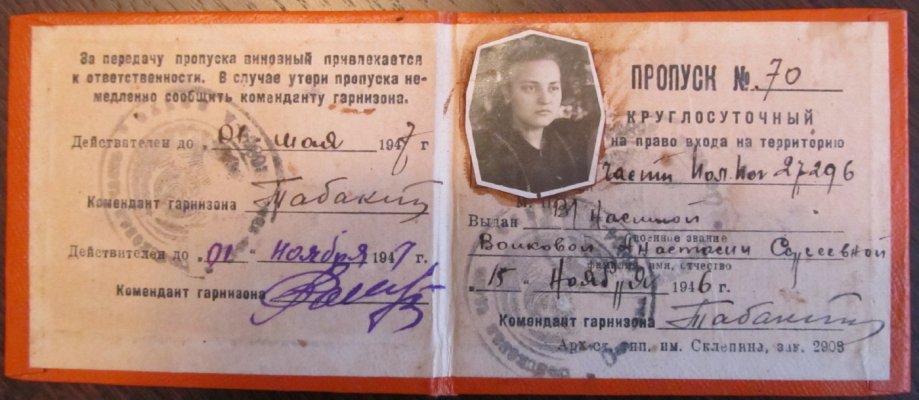 За передачу пропуска виновный привлекается
к ответственности. В случае утери пропуска не-
медленно сообщить коменданту гарнизона.
Действителен до „01" мая 1947 г
Комендант гарнизона
Действителен до „01" ноября 1947 г.
Комендант гарнизона
ПРОПУСК №. 70
КРУГЛОСУТОЧНЫЙ
на право входа на территорию
части Пол. 27296
Выдан
военное звание
Волковой Анастасии Сергеевной
фамилия, имя, отчество
„15" Ноября 1946 г.
Комендант гарнизона
тип. им. Склепина, зак. 2903